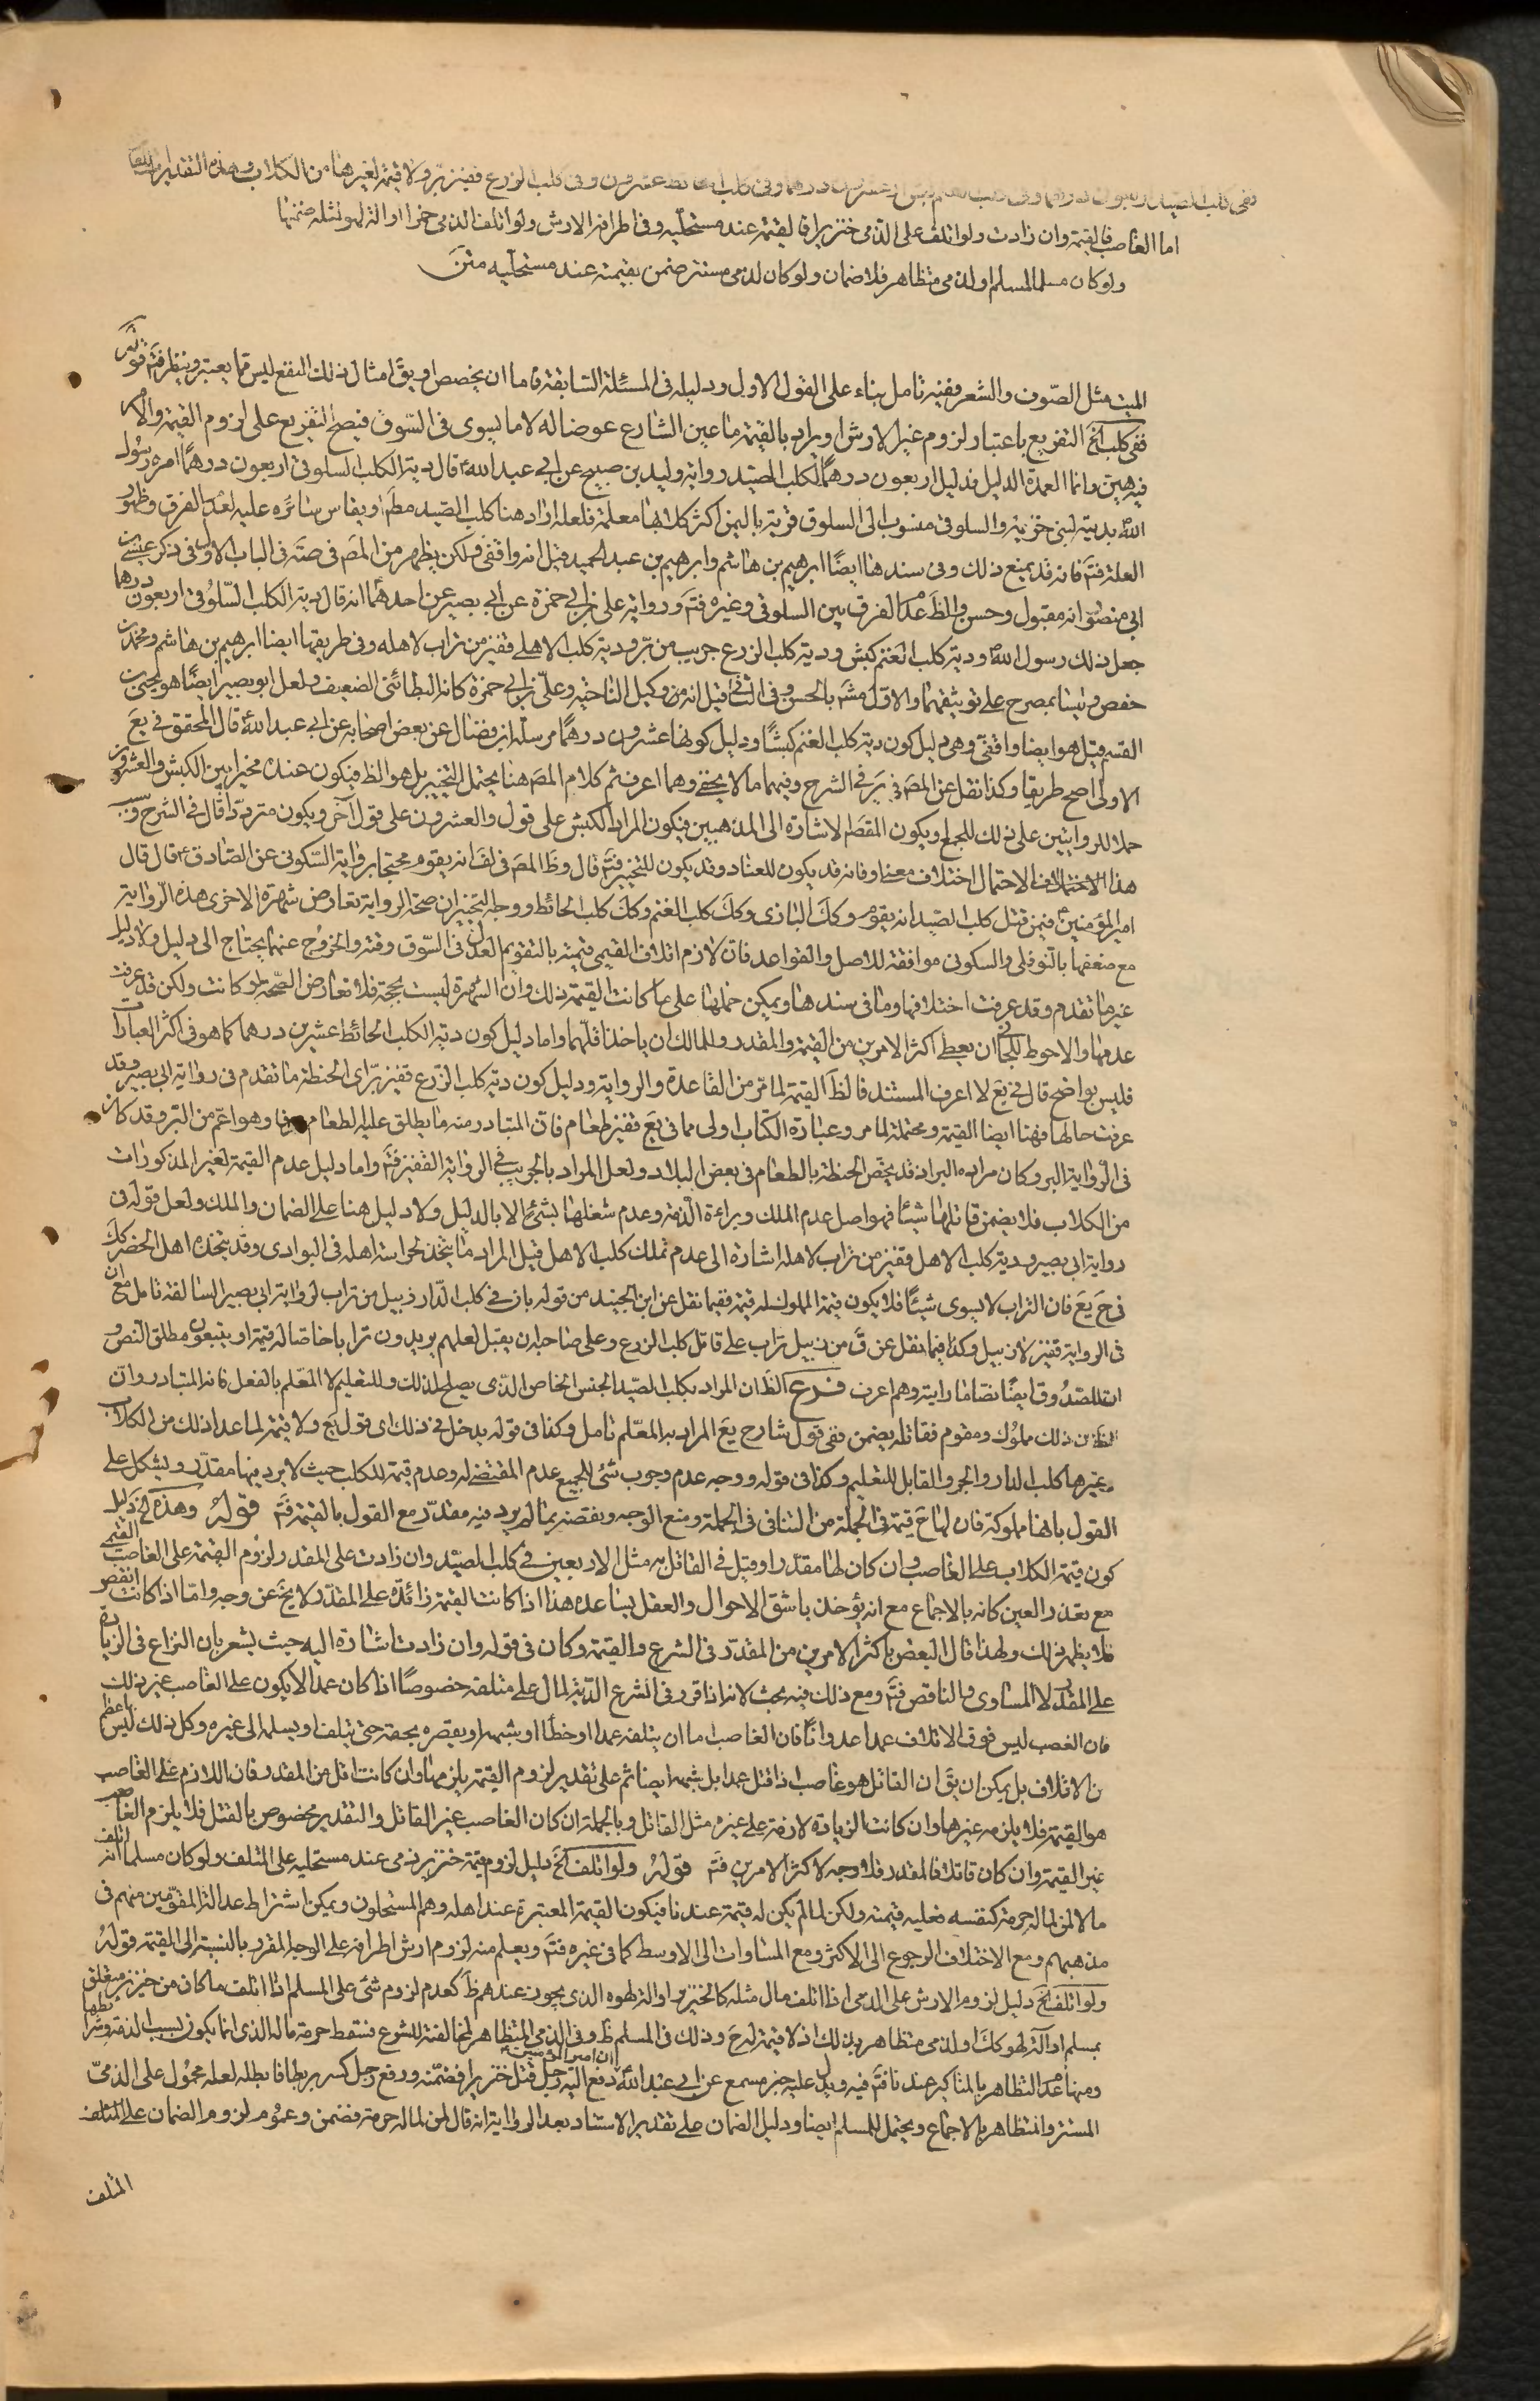 ففي كلب الصيد اربعون درهما وفي كلب الغنم كبش او عشرون درهما وفي كلب الحائط عشرون وفي كلب الزرع قفيز بر ولا قيمة لغيرها من الكلاب وهذه التقديرات للقاتل
اما الغاصب فالقيمة وان زادت ولو اتلف على الذمي خنزيرا فالقيمة عند مستحليه وفي اطرافه الارش ولو اتلف الذمي خمرا او الة لهو لمثله ضمنها
ولو كان مسلما لمسلم او لذمي متظاهر فلا ضمان ولو كان لذمي مستتر ضمن بقيمته عند مستحليه متن
الميت مثل الصوف والشعر وفيه تامل بناء على القول الاول ودليله في المسئلة السابقة فاما ان يخصص او يق امثال ذلك النفع ليس مما يعتبر وينظر فتم قوله
ففي كلب الخ التفريع باعتبار لزوم غير الارش او يراد بالقيمة ما عين الشارع عوضا له لا ما يسوى في السوق فيصح التفريع على لزوم القيمة والامر
فيه هين وانما العمدة الدليل فدليل اربعون درهما لكلب الصيد رواية وليد بن صبيح عن ابي عبد الله ع قال دية الكلب السلوقي اربعون درهما امر رسول
الله بديته لبني خزيمة والسلوقي منسوب الى السلوق قرية باليمن اكثر كلابها معلمة فلعله اراد هنا كلب الصيد مط او يقاس سائره عليه لعدم الفرق وظهور
العلة فتم فانه قد يمنع ذلك وفي سندها ايضا ابرهيم بن هاشم وابرهيم بن عبد الحميد قيل انه واقفي ولكن يظهر من المص في صة في الباب الاول في ذكر عيسى بن
ابي منصور انه مقبول وحسن والظ عدم الفرق بين السلوقي وغيره فتم ورواية على بن ابي حمزة عن ابي بصير عن احدهما انه قال دية الكلب السلوقي اربعون درهما
جعل ذلك رسول الله ودية كلب الغنم كبش ودية كلب الزرع جريب من بر ودية كلب الاهل قفيز من تراب لاهله وفي طريقها ايضا ابرهيم بن هاشم ومحمد بن
حفص وليسا بمصرح على توثيقهما والاول مشم بالحسن وفي الثاني قيل انه من وكيل الناحية وعلي بن ابي حمزة كانه البطائني الضعيف ولعل ابو بصير ايضا هو يحيى بن
القسم قيل هو ايضا واقفي وهي دليل كون دية كلب الغنم كبشا ودليل كونها عشرون درهما مرسلة ابن فضال عن بعض اصحابه عن ابي عبد الله قال المحقق في يع
الاولى اصح طريقا وكذا نقل عن المص في ير في الشرح وفيهما ما لا يخفى وهما اعرف ثم كلام المص هنا يحتمل التخيير بل هو الظ فيكون عنده مخيرا بين الكبش والعشرون
حملا للروايتين على ذلك للجمع ويكون المقصم الاشارة الى المذهبين فيكون المراد الكبش على قول والعشرون على قول آخر ويكون مترددا قال في الشرح وسبب
هذا الاختلاف الاحتمال اختلاف معنى او فانه قد يكون للعناد وقد يكون للتخيير فتم قال وظ المص في لف انه يقوم محتجا برواية السكوني عن الصادق ع قال قال
امير المؤمنين ع فيمن قتل كلب الصيد انه يقوم وكك البازي وكك كلب الغنم وكك كلب الحائط ووجه التخيير ان صحة الرواية تعارض شهرة الاخرى هذه الرواية
مع ضعفها بالنوفلي والسكوني موافقة للاصل والقواعد فان لازم اتلاف القيمي قيمته بالتقويم العدل في السوق وقته والخروج عنها يحتاج الى دليل ولا دليل
غير ما تقدم وقد عرفت اختلافها وما في سندها ويمكن حملها على ما كانت القيمة ذلك وان الشهرة ليست بحجة فلا تعارض الصحة لو كانت ولكن قد عرفت
عدمها والاحوط للجاني ان يعطي اكثر الامرين من القيمة والمقدر وللمالك ان ياخذ اقلهما واما دليل كون دية الكلب الحائط عشرين درهما كما هو في اكثر العبارات
فليس بواضح قال في يع لا اعرف المستند فالظ القيمة لما مر من القاعدة والرواية ودليل كون دية كلب الزرع قفيز بر اي الحنطة ما تقدم في رواية ابي بصير وقد
عرفت حالها فهنا ايضا القيمة ومحتملة لما مر وعبارة الكتاب اولى مما في يع قفيز طعام فان المتبادر منه ما يطلق عليه الطعام عرفا وهو اعم من البر وقد كان
في الرواية البر وكان مراده البر اذ قد يخص الحنطة بالطعام في بعض البلاد ولعل المراد بالجريب في الرواية القفيز فتم واما دليل عدم القيمة لغير المذكورات
من الكلاب فلا يضمن قاتلها شيئا فهو اصل عدم الملك وبراءة الذمة وعدم شغلها بشئ الا بالدليل ولا دليل هنا على الضمان والملك ولعل قوله في
رواية ابي بصير ودية كلب الاهل قفيز من تراب لاهله اشارة الى عدم تملك كلب الاهل قيل المراد ما يتخذ لحراسة اهله في البوادي وقد يتخذه اهل الحضر كك
في ح يع فان التراب لا يسوى شيئا فلا يكون قيمة المملوك له قيمة فيما نقل عن ابن الجنيد من قوله بان في كلب الدار زبيل من تراب لرواية ابي بصير السالفة تامل مع ان
في الرواية قفيز لا زبيل وكذا فيما نقل عن ق من زبيل تراب على قاتل كلب الزرع وعلى صاحبه ان يقبل لعلهم يريدون ترابا خاصا له قيمة او يتبعون مطلق النص و
ان للصدوق ايضا نصا ما رايته وهم اعرف فرع الظ ان المراد بكلب الصيد الجنس الخاص الذي يصلح لذلك وللتعليم لا المعلم بالفعل فانه المتبادر وان
الظ ان ذلك مملوك ومقوم فقاتله يضمن ففي قول شارح يع المراد به المعلم تامل وكذا في قوله يدخل في ذلك اي قول يع ولا قيمة لما عدا ذلك من الكلاب
وغيرها كلب الدار والجرو القابل للتعليم وكذا في قوله ووجه عدم وجوب شئ للجميع عدم المقتضي له وعدم قيمة للكلب حيث لا يرد فيها مقدر ويشكل على
القول بانها مملوكة فان لها ح قيمة في الجملة من التنافي في الجملة ومنع الوجه ونقضه بما لم يرد فيه مقدر مع القول بالقيمة فتم قوله وهذه الخ دليل
كون قيمة الكلاب على الغاصب وان كان لها مقدر او قيل في القاتل به مثل الاربعين في كلب الصيد وان زادت على المقدر لزوم القيمة على الغاصب القيمي
مع تعذر العين كانه بالاجماع مع انه يؤخذ باشق الاحوال والعقل يساعده هذا اذا كانت القيمة زائدة على المقدر لا يخ عن وجه واما اذا كانت انقص
فلا يظهر ذلك ولهذا قال البعض باكثر الامرين من المقدر في الشرع والقيمة وكان في قوله وان زادت اشارة اليه حيث يشعر بان النزاع في الزيادة
على المقدر لا المساوي والناقص فتم ومع ذلك فيه بحث لانه اذا قرر في الشرع الدية لمال على متلفه خصوصا اذا كان عمدا لا يكون على الغاصب غير ذلك
فان الغصب ليس فوق الاتلاف عمدا عدوانا فان الغاصب اما ان يتلفه عمدا او خطأ او شبهه او يقصر بحقه حتى يتلف او يسلمه الى غيره وكل ذلك ليس باعظم
من الاتلاف بل يمكن ان يق ان القاتل هو غاصب اذا قتل عمدا بل شبهه ايضا ثم على تقدير لزوم القيمة يلزمها وان كانت اقل من المقدر فان اللازم على الغاصب
هو القيمة فلا يلزمه غيرها وان كانت الزيادة لازمة على غيره مثل القاتل وبالجملة ان كان الغاصب غير القاتل والتقدير مخصوص بالقتل فلا يلزم الغاصب
غير القيمة وان كان قاتلا فالمقدر فلا وجه لاكثر الامرين فتم قوله ولو اتلف الخ دليل لزوم قيمة خنزير ذمي عند مستحليه على المتلف ولو كان مسلما انه اتلف
مالا لمن لماله حرمة كنفسه فعليه قيمته ولكن لما لم يكن له قيمة عندنا فيكون القيمة المعتبرة عند اهله وهم المستحلون ويمكن اشتراط عدالة المقومين منهم في
مذهبهم ومع الاختلاف الرجوع الى الاكثر ومع المساوات الى الاوسط كما في غيره فتم ويعلم منه لزوم ارش اطرافه على الوجه المقرر بالنسبة الى القيمة قوله
ولو اتلف الخ دليل لزوم الارش على الذمي اذا اتلف مال مثله كالخنزير او الة لهوه الذي يجوز عندهم ظ كعدم لزوم شئ على المسلم اذا اتلف ما كان من خنزير متعلق
بمسلم او آلة لهو كك او لذمي متظاهر بذلك اذ لا قيمة له ح وذلك في المسلم ظ وفي الذمي المتظاهر لمخالفته للشرع فتسقط حرمة ماله الذي انما يكون لسبب الذمة وشرائطها
ومنها عدم التظاهر بالمناكير عندنا فتم فيه ويدل عليه خبر مسمع عن ابي عبد الله ان امير المؤمنين ع رفع اليه رجل قتل خنزيرا فضمنه ورفع رجل كسر بربطا فابطله لعله محمول على الذمي
المستتر والمتظاهر بالاجماع ويحتمل للمسلم ايضا ودليل الضمان على تقدير الاستتار بعد الرواية انه قال لمن لماله حرمة فضمن وعموم لزوم الضمان على المتلف
المتلف